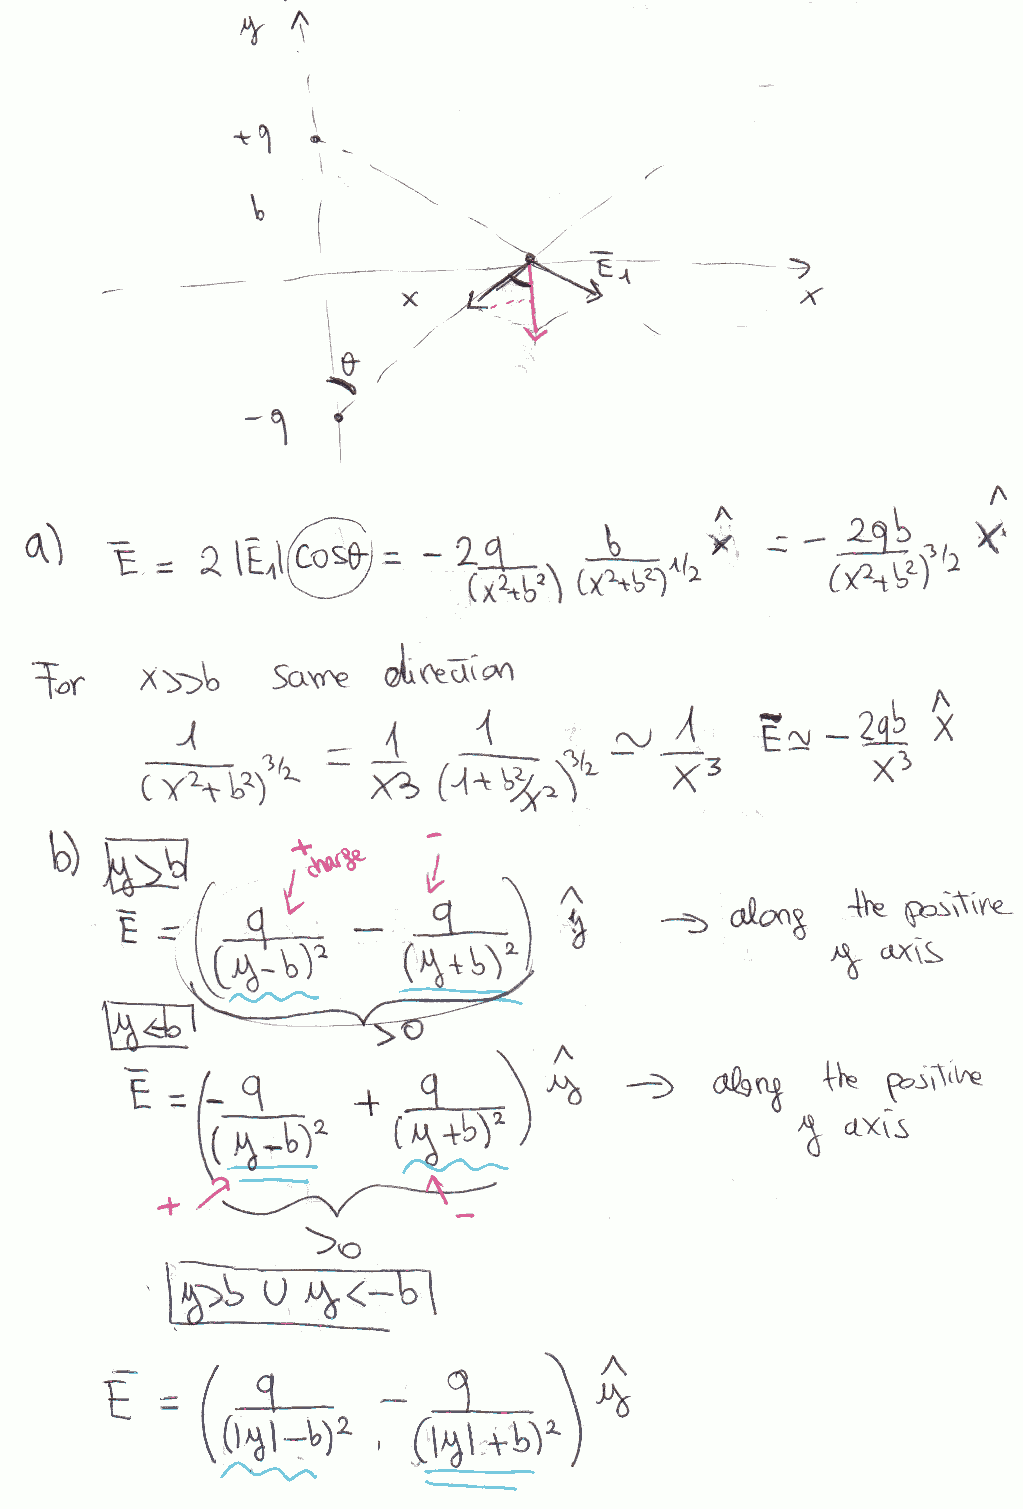 y
+q
b
E̅₁
x
x
θ
-q
a) E̅ = 2|E̅₁| cosθ = - 2q/(x²+b²) b/(x²+b²)^1/2 x̂ = - 2qb/(x²+b²)^3/2 x̂
For x>>b same direction
1/(x²+b²)^3/2 = 1/x3 1/(1+b²/x²)^3/2 ≃ 1/x³ E̅ ≃ - 2qb/x³ x̂
b) y>b
+ charge -
E̅ = (q/(y-b)² - q/(y+b)²) ŷ → along the positive y axis
>0
y<-b
E̅ = (-q/(y-b)² + q/(y+b)²) ŷ → along the positive y axis
+ -
>0
y>b ∪ y<-b
E̅ = (q/(|y|-b)² - q/(|y|+b)²) ŷ